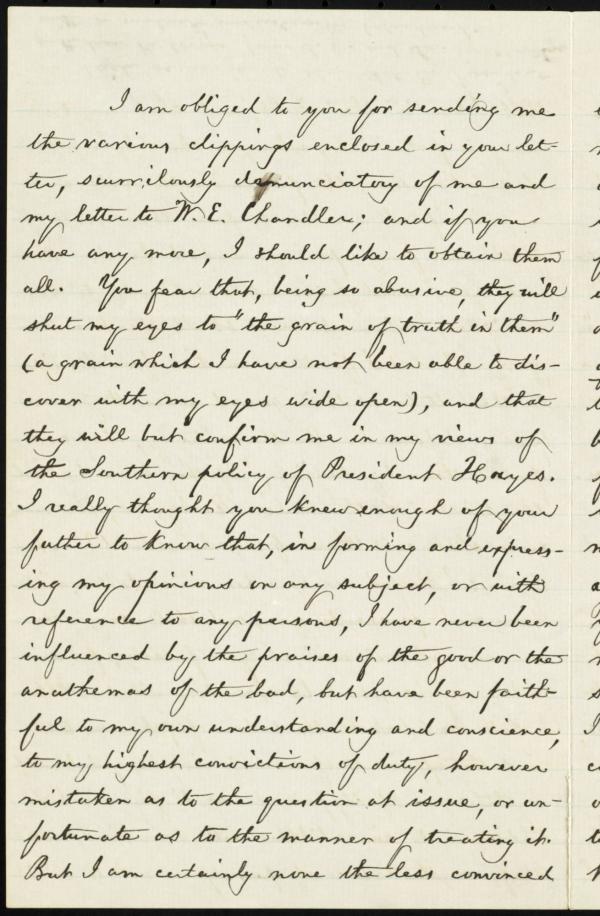 I am obliged to you for sending me
the various clippings enclosed in your let-
ter, scurrilously denunciatory of me and
my letter to W. E. Chandler; and if you
have any more, I should like to obtain them
all. You fear that, being so abusive, they will
shut my eyes to "the grain of truth in them"
(a grain which I have not been able to dis-
cover with my eyes wide open), and that
they will but confirm me in my views of
the Southern policy of President Hayes.
I really thought you knew enough of your
father to know that, in forming and express-
ing my opinions on any subject, or with
reference to any persons, I have never been
influenced by the praises of the good or the
anathemas of the bad, but have been faith-
ful to my own understanding and conscience,
to my highest convictions of duty, however
mistaken as to the question at issue, or un-
fortunate as to the manner of treating it.
But I am certainly none the less convinced